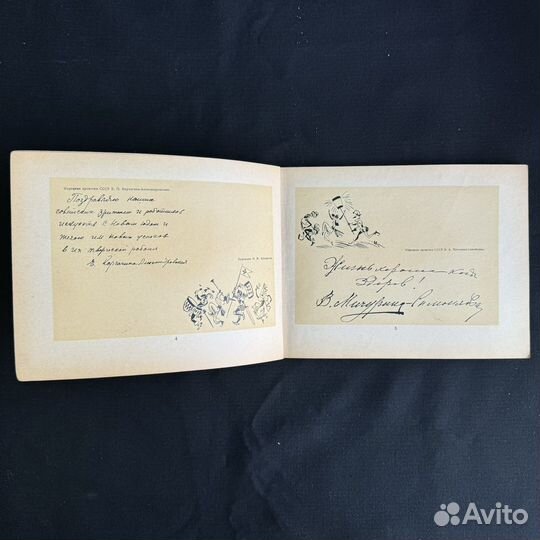 Народная артистка СССР Е. П. Корчагина-Александровская
Поздравляю наших
советских зрителей и работников
искусств с Новым годом и
желаю им новых успехов
в их творческой работе
Е. Корчагина-Александровская
4
Народная артистка СССР В. А. Мичурина-Самойлова
Жизнь хороша когда
здоров!
В. Мичурина-Самойлова
5
Avito